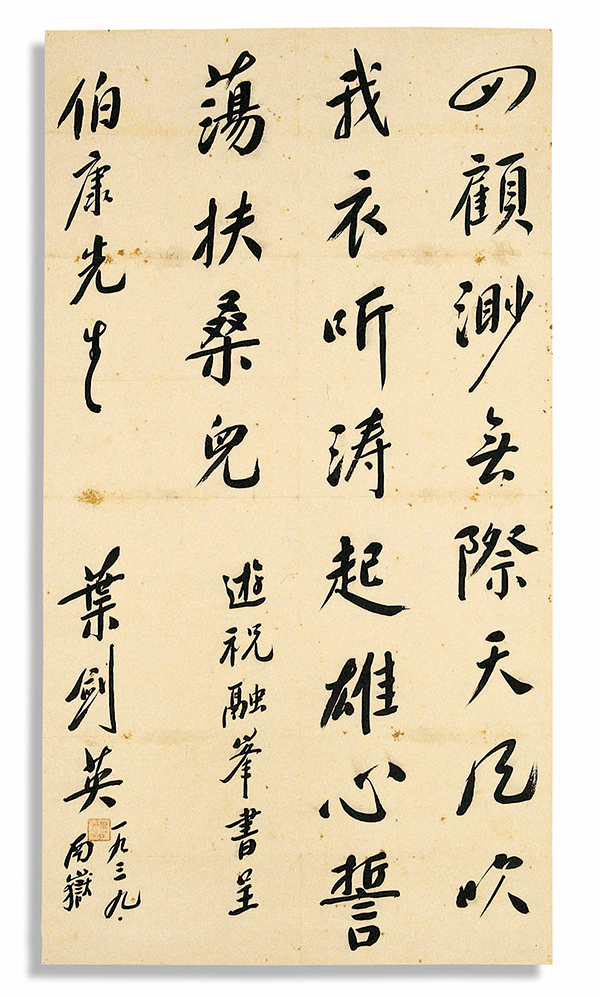 四顧渺无際天风吹
我衣听涛起雄心誓
蕩扶桑兒
遊祝融峯書呈
伯康先生
葉劍英
一九三九.
南嶽